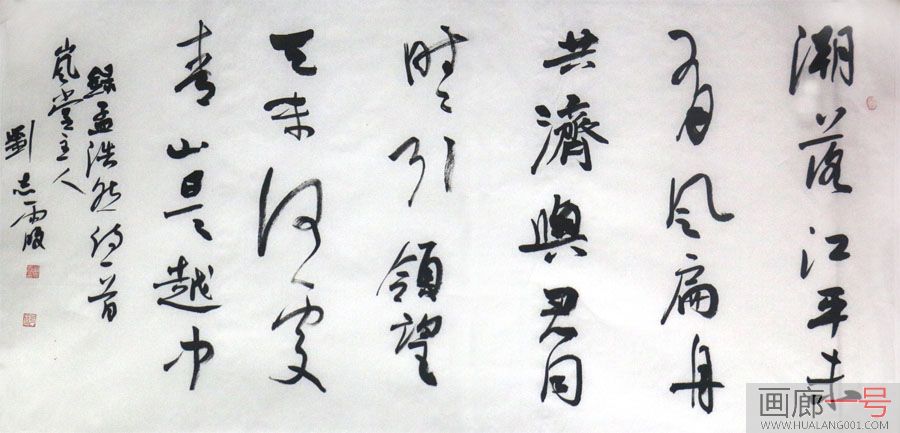 潮落江平未
有风扁舟
共濟與君同
時々引領望
天末何處
青山是越中
錄孟浩然詩一首
嵐堂主人
劉志霞
画廊一号
WWW.HUALANG001.COM